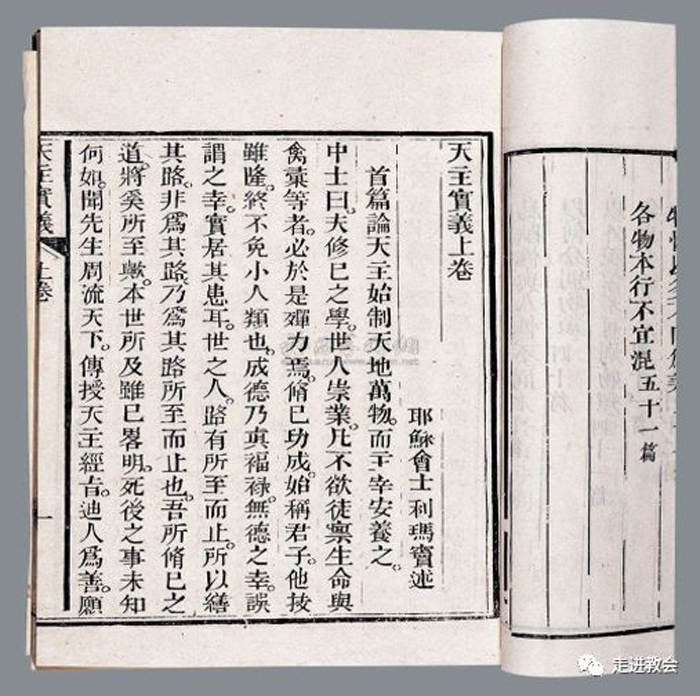 各物本行不宜混五十一篇
天主實義上卷
耶穌會士利瑪竇述
首篇論天主始制天地萬物。而主宰安養之。
中士曰。夫修己之學。世人崇業。凡不欲徒稟生命與
禽彙等者。必於是殫力焉。脩己功成。始稱君子。他技
雖隆。終不免小人類也。成德乃眞福祿。無德之幸。誤
謂之幸。實居其患耳。世之人。路有所至而止。所以繕
其路。非爲其路。乃爲其路所至而止也。吾所脩己之
道。將奚所至歟。本世所及雖已畧明。死後之事未知
何如。聞先生周流天下。傳授天主經旨。迪人爲善。願
天主實義 上卷 一
走进教会